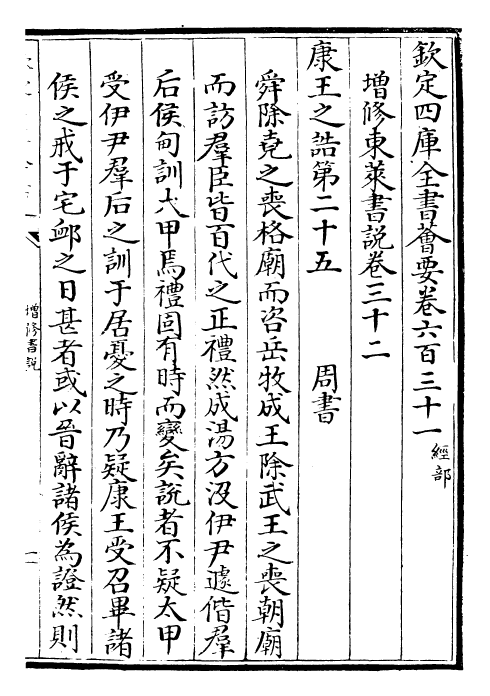 欽定四庫全書薈要卷六百三十一 經部
增修東萊書說卷三十二
康王之誥第二十五 周書
舜除堯之喪格廟而咨岳牧成王除武王之喪朝廟
而訪羣臣皆百代之正禮然成湯方沒伊尹遽偕羣
后侯甸訓太甲焉禮固有時而變矣說者不疑太甲
受伊尹羣后之訓于居憂之時乃疑康王受召畢諸
侯之戒于宅卹之日甚者或以晉辭諸侯為證然則
增修書說
一